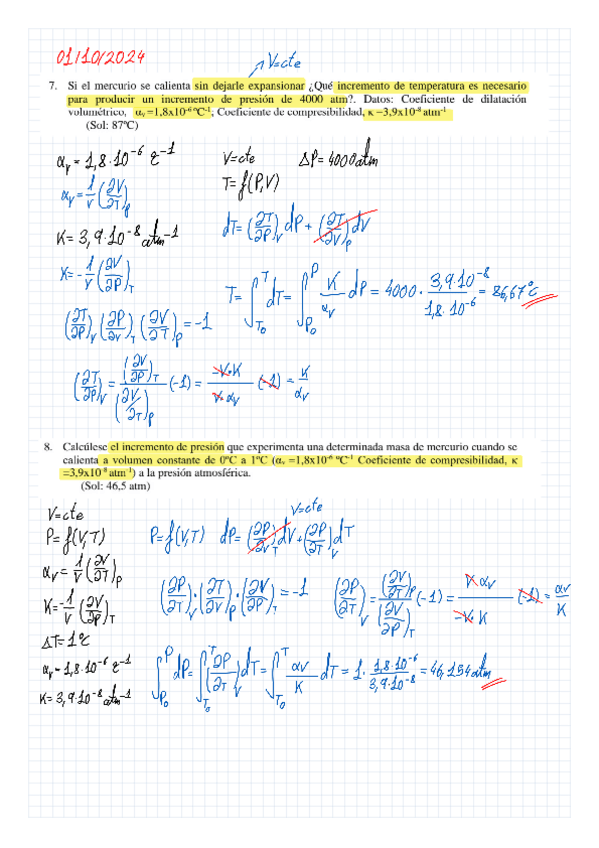 01/10/2024
V=cte
7. Si el mercurio se calienta sin dejarle expansionar ¿Qué incremento de temperatura es necesario
para producir un incremento de presión de 4000 atm?. Datos: Coeficiente de dilatación
volumétrico, αᵥ =1,8x10⁻⁶ ºC⁻¹; Coeficiente de compresibilidad, κ =3,9x10⁻⁸ atm⁻¹
(Sol: 87ºC)
αᵥ = 1,8·10⁻⁶ ℃⁻¹
V=cte ΔP= 4000 atm
αᵥ = 1/V (∂V/∂T)P
T= f(P,V)
K= 3,9·10⁻⁸ atm⁻¹
dT= (∂T/∂P)V dP + (∂T/∂V)P dV
K= - 1/V (∂V/∂P)T
T= ∫T₀^T dT= ∫P₀^P K/αᵥ dP = 4000 · 3,9·10⁻⁸/1,8·10⁻⁶ = 86,67℃
(∂T/∂P)V (∂P/∂V)T (∂V/∂T)P = -1
(∂T/∂P)V = (∂V/∂P)T/(∂V/∂T)P (-1) = -V·K/V·αᵥ (-1) = K/αᵥ
8. Calcúlese el incremento de presión que experimenta una determinada masa de mercurio cuando se
calienta a volumen constante de 0ºC a 1ºC (αᵥ =1,8x10⁻⁶ ºC⁻¹ Coeficiente de compresibilidad, κ
=3,9x10⁻⁸ atm⁻¹) a la presión atmosférica.
(Sol: 46,5 atm)
V=cte
V=cte
P= f(V,T)
P= f(V,T) dP= (∂P/∂V)T dV + (∂P/∂T)V dT
αᵥ = 1/V (∂V/∂T)P
K= -1/V (∂V/∂P)T
(∂P/∂T)V · (∂T/∂V)P · (∂V/∂P)T = -1
(∂P/∂T)V = (∂V/∂T)P/(∂V/∂P)T (-1) = V αᵥ/-V·K (-1) = αᵥ/K
ΔT= 1℃
αᵥ = 1,8·10⁻⁶ ℃⁻¹
K= 3,9·10⁻⁸ atm⁻¹
∫P₀^P dP= ∫T₀^T (∂P/∂T)V dT = ∫T₀^T αᵥ/K dT = 1· 1,8·10⁻⁶/3,9·10⁻⁸ = 46,154 atm